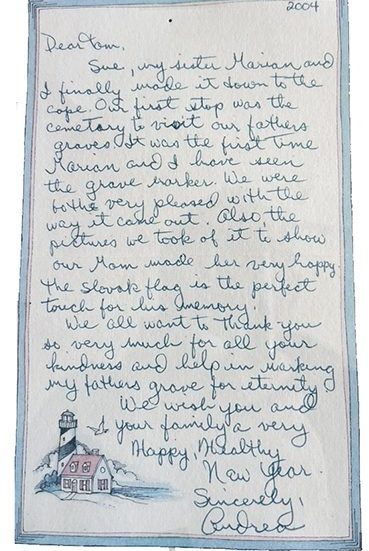 2004
Dear Tom,
Sue, my sister Marian and
I finally made it down to the
cape. Our first stop was the
cemetary to visit our fathers
graves. It was the first time
Marian and I have seen
the grave marker. We were
bothe very pleased with the
way it came out. Also, the
pictures we took of it to show
our Mom made her very happy.
The Slovak flag is the perfect
touch for his memory.
We all want to Thank you
so very much for all your
kindness and help in marking
my fathers grave for eternity.
We wish you and
your family a very
Happy, Healthy
New Year.
Sincerely,
Andrea